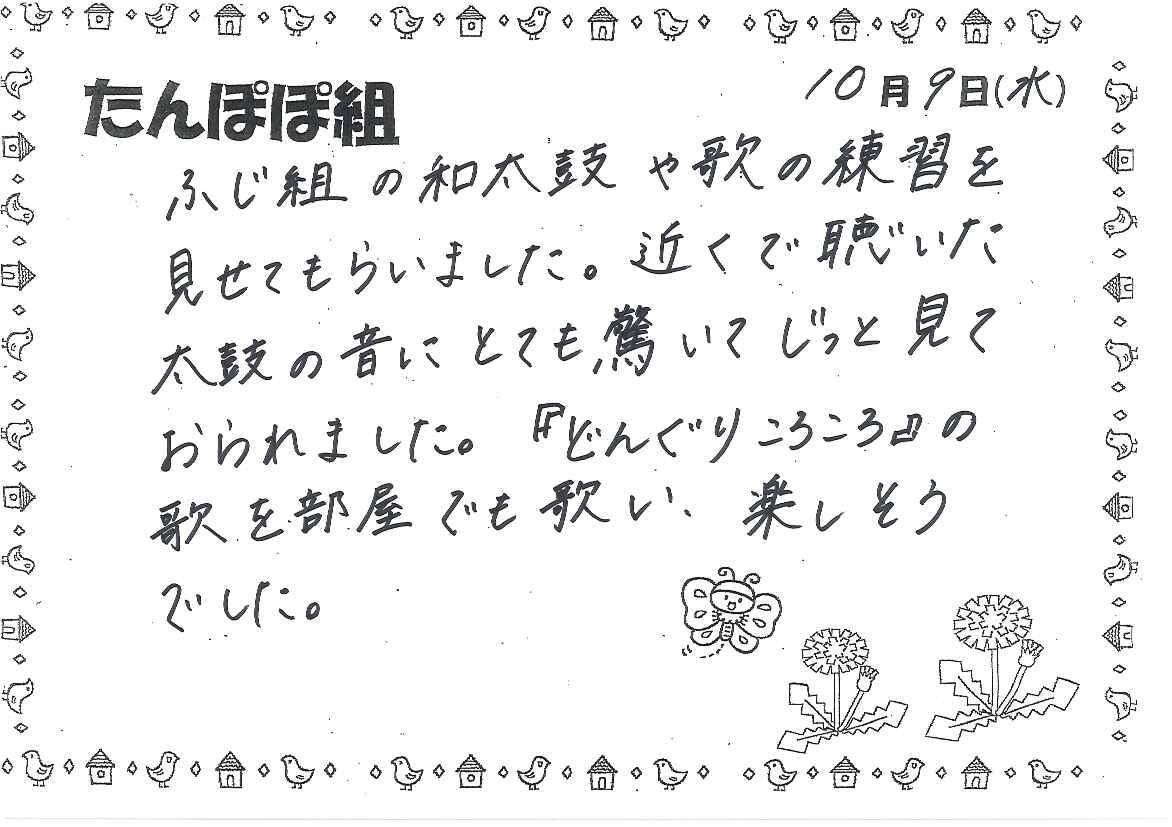 たんぽぽ組
10月9日(水)
ふじ組の和太鼓や歌の練習を
見せてもらいました。近くで聴いた
太鼓の音にとても驚いてじっと見て
おられました。『どんぐりころころ』の
歌を部屋でも歌い、楽しそう
でした。